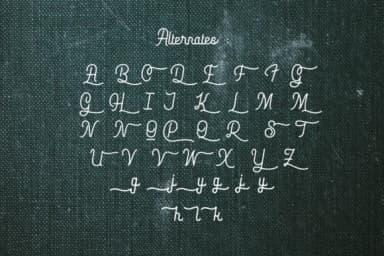 Alternates
A B C D E F F G
G H I J K L M M
N N O P Q R S T
U V V W X Y Z
g j y g j y
h l h